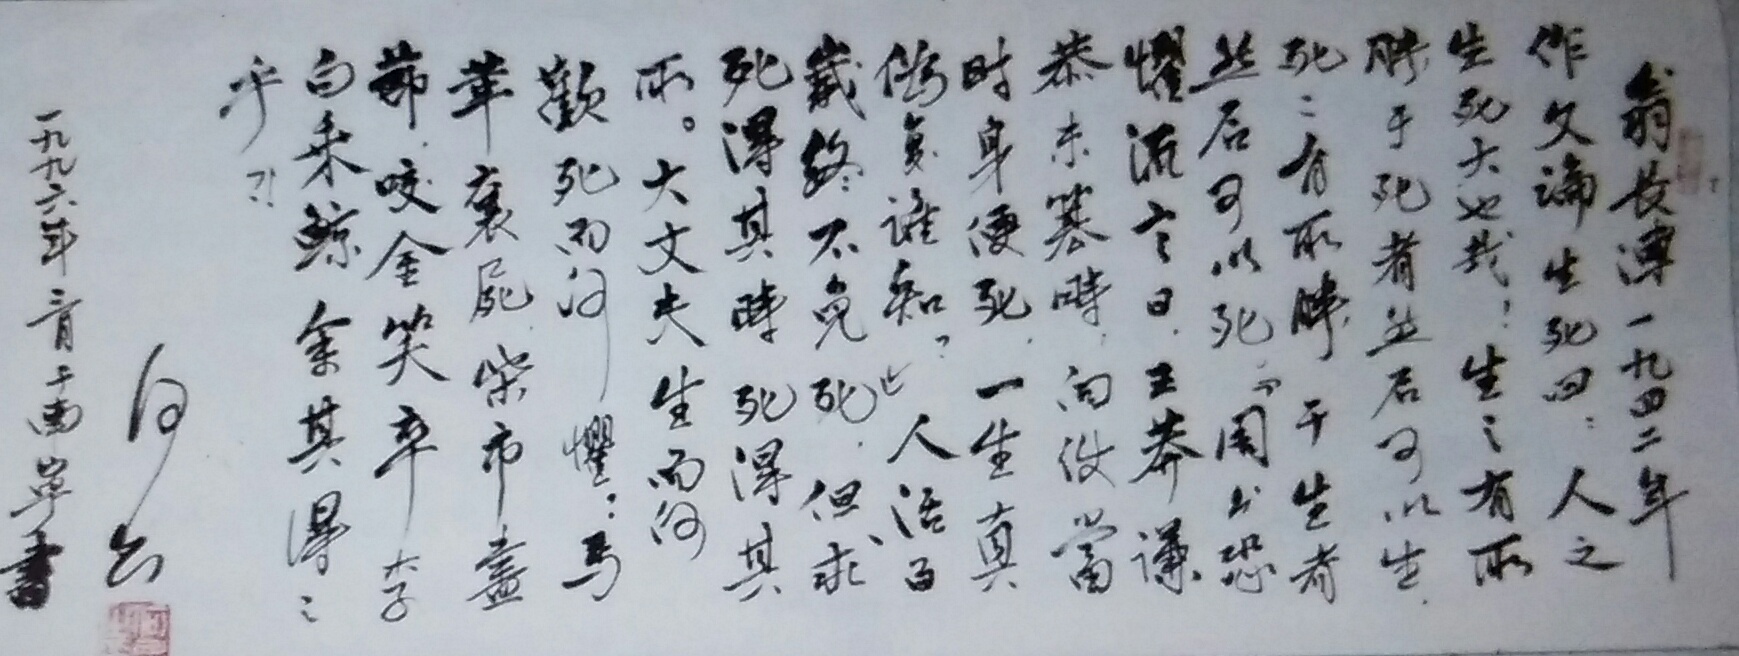 翁长溥一九四二年
作文論生死曰：人之
生死大也哉！生之有所
勝于死者然后可以生，
死之有所勝于生者
然后可以死。"周公恐
懼流言日，王莽謙
恭未篡時，向使當
时身便死，一生真
偽复誰知？"人活百
歲終不免死，但求
死得其時死得其
所。大丈夫生而何
歡死而何懼：马
革裹屍，柴市盡
節，咬金笑卒，李
白乘鯨，余其得之
乎
一九九六年三月于南寧書